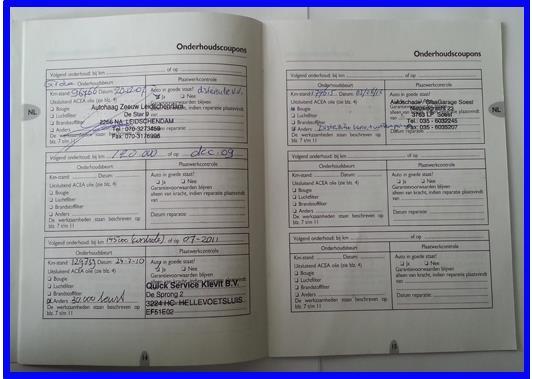 Onderhoudscoupons
Volgend onderhoud: bij km of op
Onderhoudsbeurt Plaatwerkcontrole
Km-stand 96766 Datum
Auto in goede staat?
Uitsluitend ACEA olie (zie blz. 4)
Ja Nee
Bougie
Garantievoorwaarden blijven
Luchtfilter
alleen van kracht, indien reparatie plaatsvindt
Brandstoffilter
Anders
Autohaag Zeeuw Leidschendam
De Star 9
2266 NA LEIDSCHENDAM
Tel.: 070-3273469
Volgend onderhoud: bij km 120.000 of op dec. 09
Onderhoudsbeurt Plaatwerkcontrole
Km-stand Datum
Auto in goede staat?
Uitsluitend ACEA olie (zie blz. 4)
Ja Nee
Bougie
Garantievoorwaarden blijven
Luchtfilter
alleen van kracht, indien reparatie plaatsvindt
Brandstoffilter
van
Anders
De werkzaamheden staan beschreven op
Datum reparatie:
blz. 7 t/m 11
Volgend onderhoud: bij km of op 07-2011
Onderhoudsbeurt Plaatwerkcontrole
Km-stand 129759 Datum 24-2-10
Auto in goede staat?
Uitsluitend ACEA olie (zie blz. 4)
Ja Nee
Bougie
Garantievoorwaarden blijven
Luchtfilter
alleen van kracht, indien reparatie plaatsvindt
Brandstoffilter
Anders 30.000 beurt
De werkzaamheden staan beschreven op
blz. 7 t/m 11
Quick Service Klevit B.V.
De Sprong 2
3224 HC HELLEVOETSLUIS
EF51E02
NL
Onderhoudscoupons
Volgend onderhoud: bij km of op
Onderhoudsbeurt Plaatwerkcontrole
Km-stand Datum
Auto in goede staat?
Uitsluitend ACEA olie (zie blz. 4)
Bougie
Luchtfilter
Brandstoffilter
Anders
De werkzaamheden staan beschreven op
blz. 7 t/m 11
Autoschade/ GlasGarage Soest
3763 LP Soest
Tel.: 035 - 6032245
Fax: 035 - 6035207
Volgend onderhoud: bij km of op
Onderhoudsbeurt Plaatwerkcontrole
Km-stand Datum
Auto in goede staat?
Uitsluitend ACEA olie (zie blz. 4)
Ja Nee
Bougie
Garantievoorwaarden blijven
Luchtfilter
alleen van kracht, indien reparatie plaatsvindt
Brandstoffilter
van
Anders
De werkzaamheden staan beschreven op
Datum reparatie:
blz. 7 t/m 11
Volgend onderhoud: bij km of op
Onderhoudsbeurt Plaatwerkcontrole
Km-stand Datum
Auto in goede staat?
Uitsluitend ACEA olie (zie blz. 4)
Ja Nee
Bougie
Garantievoorwaarden blijven
Luchtfilter
alleen van kracht, indien reparatie plaatsvindt
Brandstoffilter
van
Anders
De werkzaamheden staan beschreven op
Datum reparatie:
blz. 7 t/m 11
NL